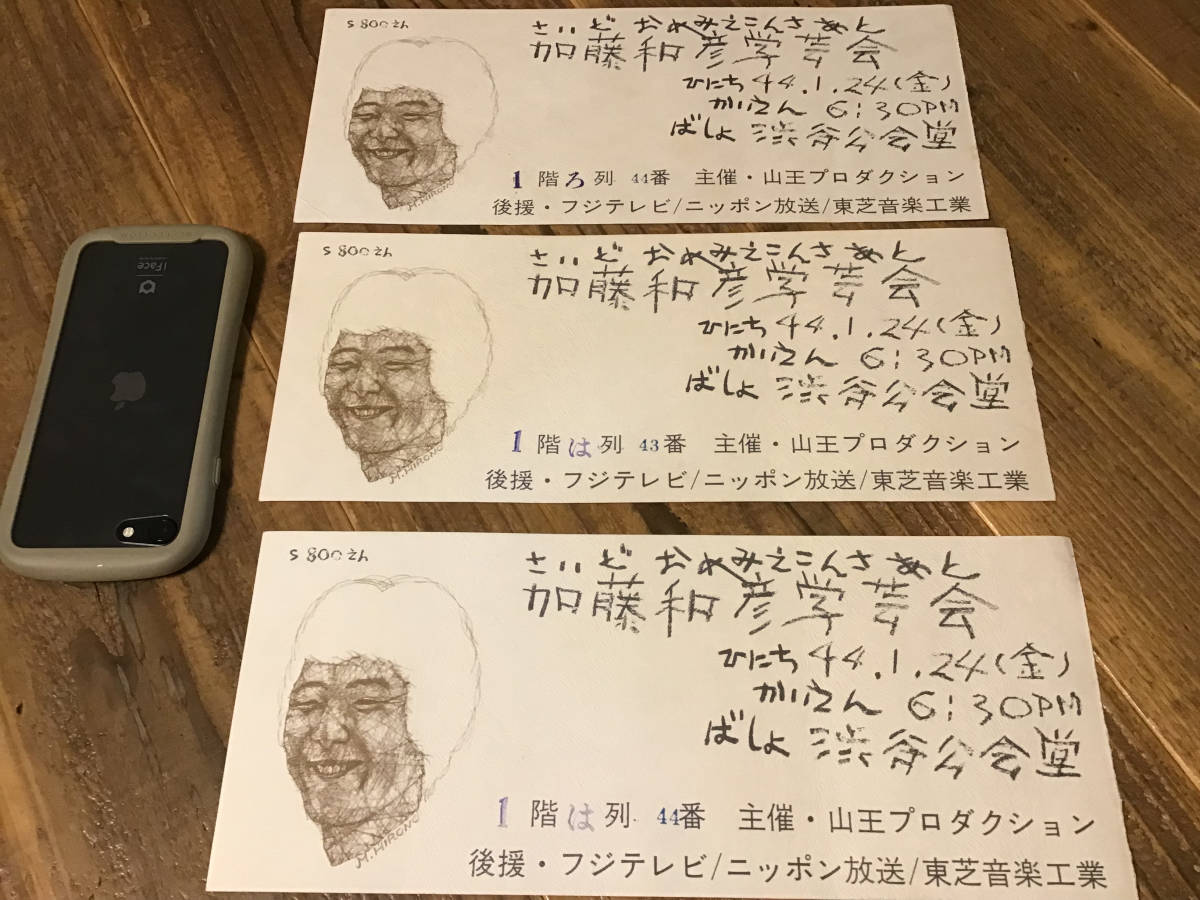 S 800えん
さいど おめみえこんさあと
加藤和彦学芸会
ひにち 44.1.24(金)
かいえん 6:30PM
ばしょ 渋谷公会堂
1階ろ列 44番 主催・山王プロダクション
後援・フジテレビ/ニッポン放送/東芝音楽工業
M.HIRONO
S 800えん
さいど おめみえこんさあと
加藤和彦学芸会
ひにち 44.1.24(金)
かいえん 6:30PM
ばしょ 渋谷公会堂
1階は列 43番 主催・山王プロダクション
後援・フジテレビ/ニッポン放送/東芝音楽工業
M.HIRONO
iFace
S 800えん
さいど おめみえこんさあと
加藤和彦学芸会
ひにち 44.1.24(金)
かいえん 6:30PM
ばしょ 渋谷公会堂
1階は列 44番 主催・山王プロダクション
後援・フジテレビ/ニッポン放送/東芝音楽工業
M.HIRONO